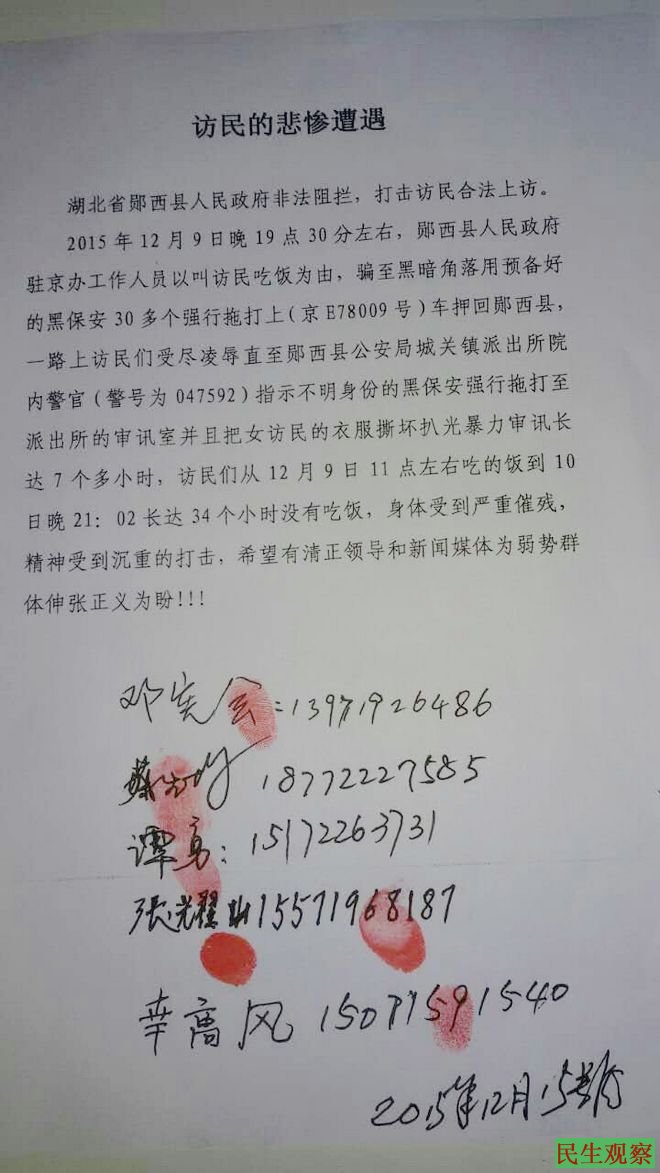 访民的悲惨遭遇
湖北省郧西县人民政府非法阻拦，打击访民合法上访。
2015年12月9日晚19点30分左右，郧西县人民政府
驻京办工作人员以叫访民吃饭为由，骗至黑暗角落用预备好
的黑保安30多个强行拖打上（京E78009号）车押回郧西县，
一路上访民们受尽凌辱直至郧西县公安局城关镇派出所院
内警官（警号为047592）指示不明身份的黑保安强行拖打至
派出所的审讯室并且把女访民的衣服撕坏扒光暴力审讯长
达7个多小时，访民们从12月9日11点左右吃的饭到10
日晚21：02长达34个小时没有吃饭，身体受到严重催残，
精神受到沉重的打击，希望有清正领导和新闻媒体为弱势群
体伸张正义为盼!!!
邓宪会：13971926486
蔡 18772227585
谭亮：15172263731
张光耀 15571968187
幸高风 15071591540
2015年12月15号
民生观察